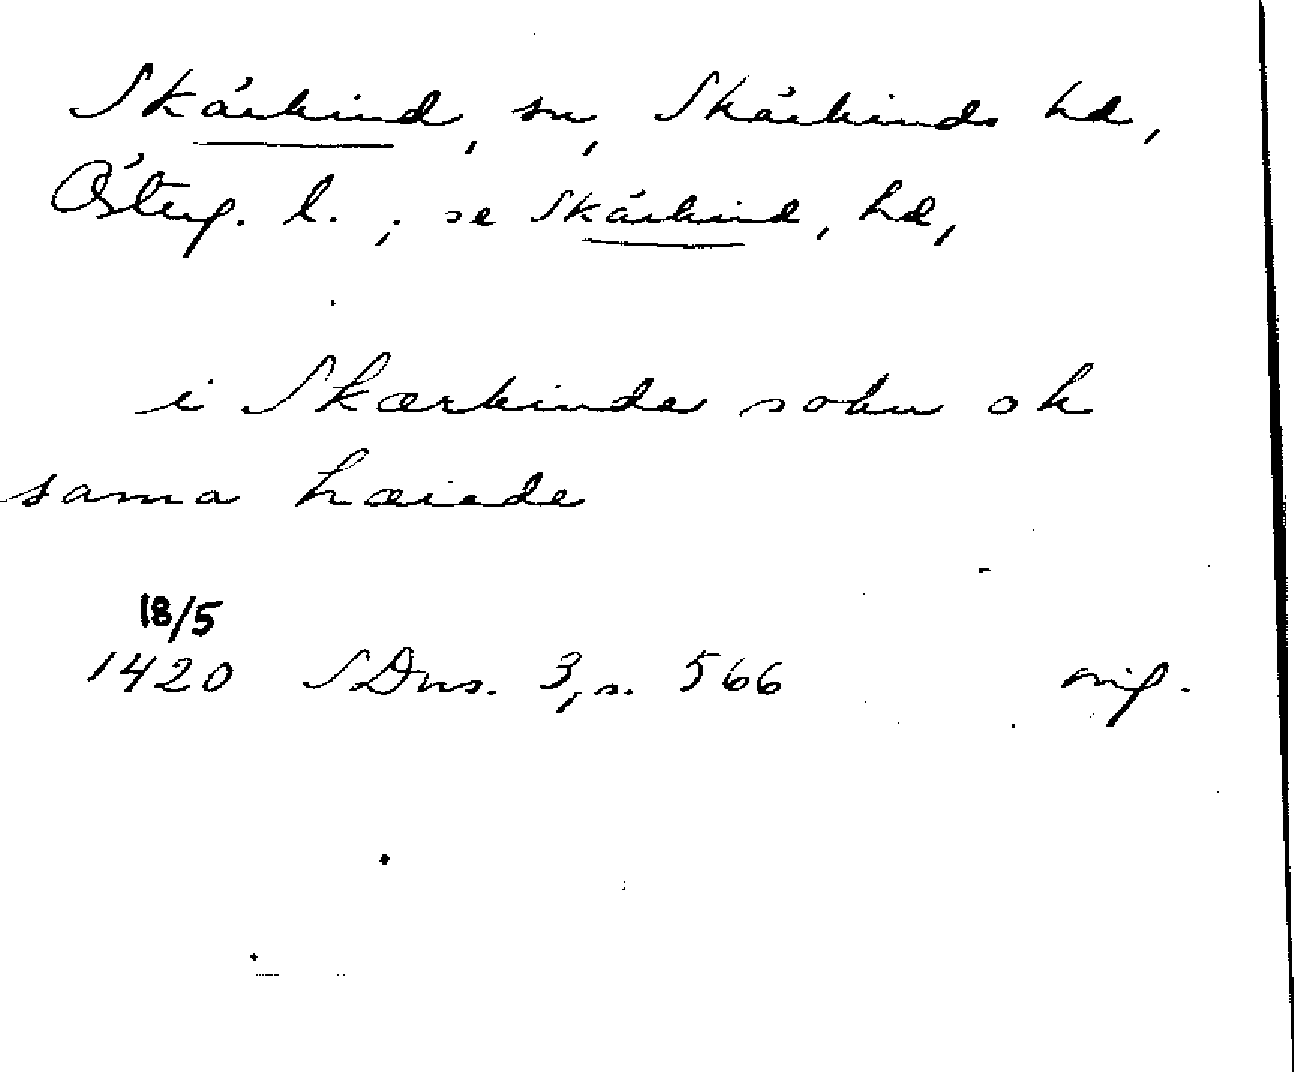 Skärkind, sn, Skärkinds hd,
Österg. l. ; se Skärkind, hd,
i Skærkinda sokn ok
sama hærade
18/5
1420 SDns. 3, s. 566 orig.